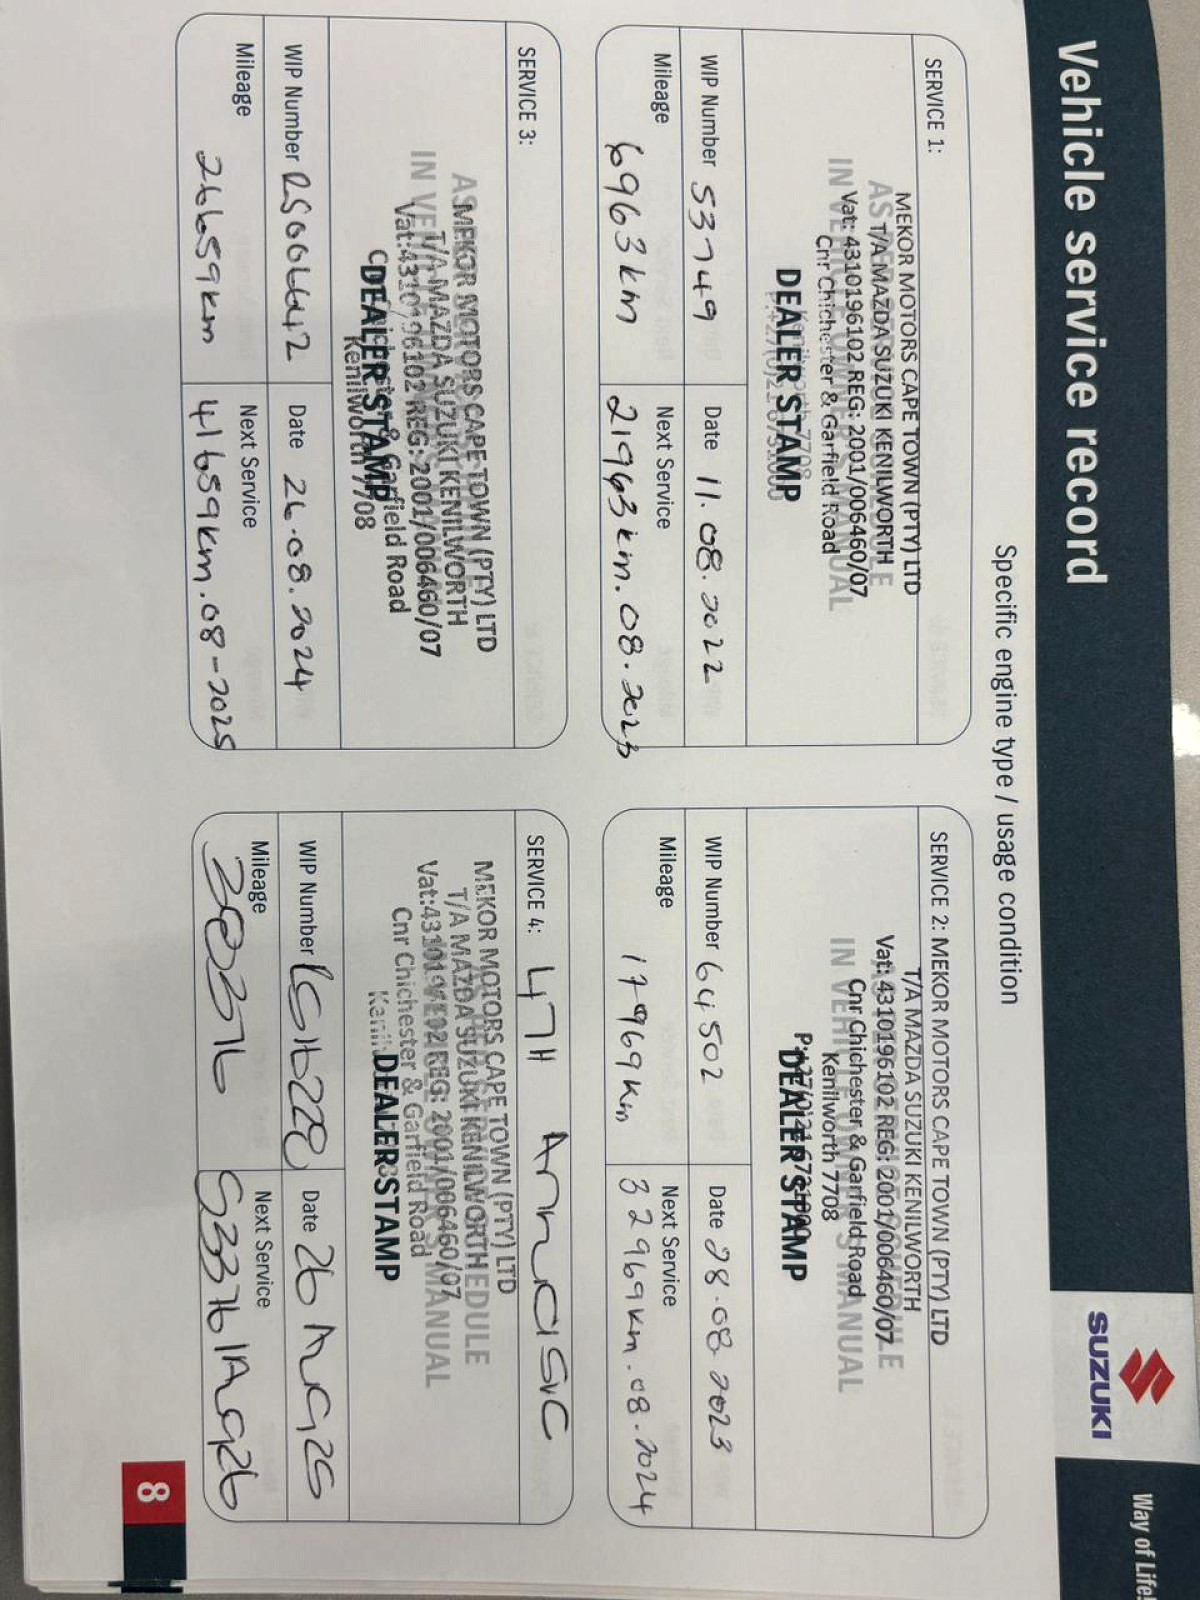 Vehicle service record
SUZUKI
Way of Life!
Specific engine type / usage condition
SERVICE 1:
MEKOR MOTORS CAPE TOWN (PTY) LTD
T/A MAZDA SUZUKI KENILWORTH
Vat: 4310196102 REG: 2001/006460/07
Cnr Chichester & Garfield Road
Kenilworth 7708
DEALER STAMP
WIP Number 53749
Date 11.08.2022
Mileage 6963km
Next Service 21963km.08.2023
SERVICE 2:
MEKOR MOTORS CAPE TOWN (PTY) LTD
T/A MAZDA SUZUKI KENILWORTH
Vat: 4310196102 REG: 2001/006460/07
Cnr Chichester & Garfield Road
Kenilworth 7708
DEALER STAMP
WIP Number 64502
Date 28.08.2023
Mileage 17969km
Next Service 32969km.08.2024
SERVICE 3:
MEKOR MOTORS CAPE TOWN (PTY) LTD
T/A MAZDA SUZUKI KENILWORTH
Vat:4310196102 REG: 2001/006460/07
Garfield Road
Kenilworth 7708
DEALER STAMP
WIP Number
Date 26.08.2024
Mileage 26659km
Next Service 41659km.08-2025
SERVICE 4: 4TH Annual SVC
MEKOR MOTORS CAPE TOWN (PTY) LTD
T/A MAZDA SUZUKI KENILWORTH
Vat:4310196102 REG: 2001/006460/07
Cnr Chichester & Garfield Road
DEALER STAMP
WIP Number
Date 26 AUG 25
Mileage
Next Service
8